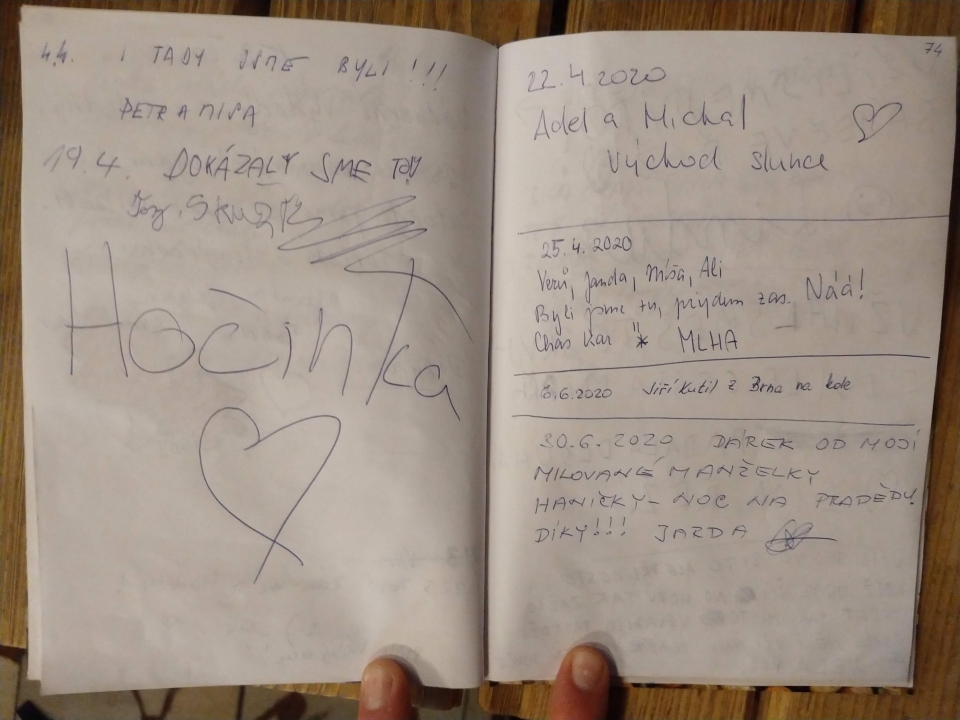 4.4. I TADY JSME BYLI!!!
PETR A MISA
19.4. DOKÁZALY SME TO!!
Hočinka
74
22.4.2020
Adel a Michal
Východ slunce
25.4.2020
Verů, Janda, Míša, Ali
Byli jsme tu, přijdem zas. Náá!
MLHA
6.6.2020 Jiří Kutil z Brna na kole
30.6.2020 DÁREK OD MOJÍ
MILOVANÉ MANŽELKY
HANIČKY - NOC NA PRADĚDU.
DÍKY!!! JARDA